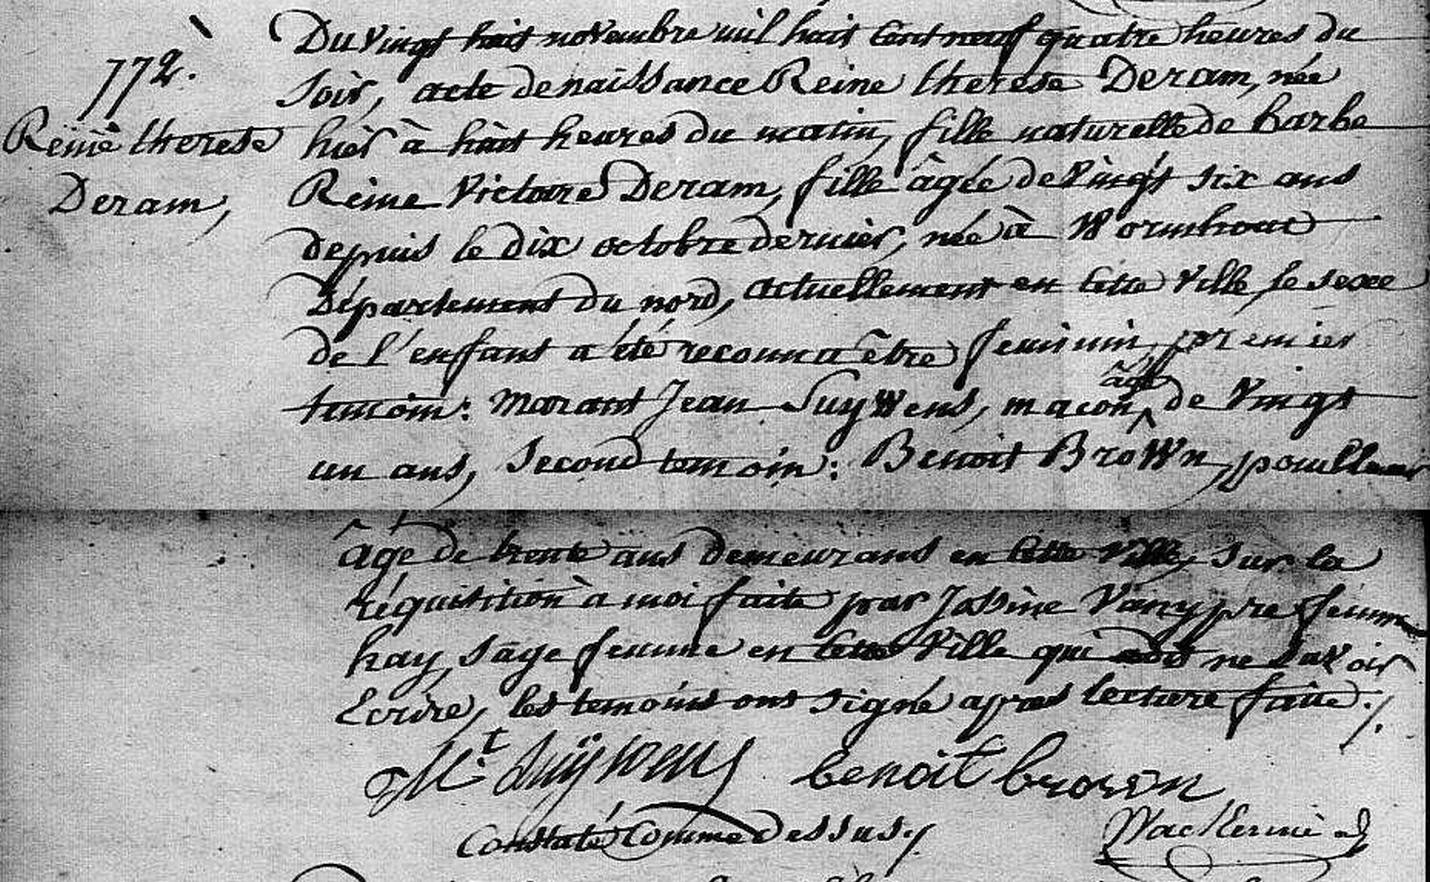 772.
Reine therese
Deram,
Du vingt huit novembre mil huit cent neuf quatre heures du
soir, acte de naissance Reine therese Deram, née
hier à huit heures du matin, fille naturelle de barbe
Reine Victoire Deram, fille âgée de vingt six ans
depuis le dix octobre dernier, née à Wormhout
Département du nord, actuellement en cette ville, le sexe
de l'enfant a été reconnu être feminin, premier
temoin: Morant Jean Suywens, macon, âgé de vingt
un ans, second temoin: Benoit Brown,
âgé de trente ans demeurans en cette ville, sur la
réquisition à moi faite par Jossine Vanypre femme
hay, sage femme en cette ville qui a dit ne savoir
Ecrire, les temoins ont signé apres lecture faite./.
M.t Suÿwens benoit brown
Constaté Comme Dessus./